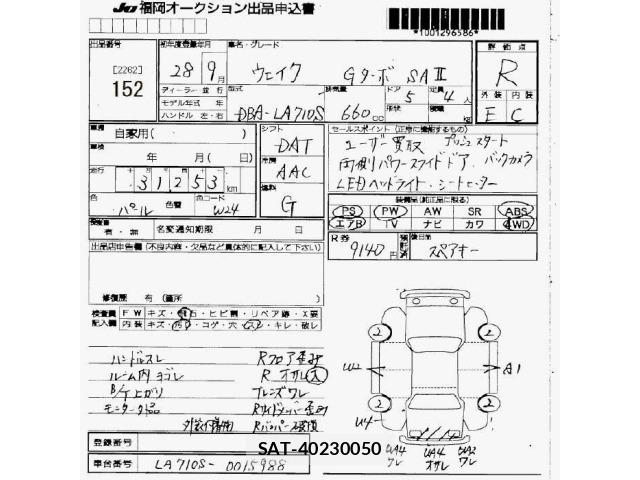 JU 福岡オークション出品申込書
*1001296586*
出品番号
[2262]
152
初年度登録年月
28年 9月
ディーラー 並行
モデル年式 年
ハンドル 左・右
車名・グレード
ウェイク Gターボ SAⅢ
型式
DBA-LA710S
排気量
660 cc
ドア
5
形状
定員
4人
積載
kg
評価点
R
外装 内装
E C
車歴
自家用( )
車検
年 月( )
走行
31,253 km
色
パール
色替
色コード
W24
シフト
DAT
冷房
AAC
燃料
G
セールスポイント (正常に機能するもの)
ユーザー買取 プッシュスタート
両側パワースライドドア、バックカメラ
LEDヘッドライト・シートヒーター
装備品(純正品に限る)
PS PW AW SR ABS
エアB TV ナビ カワ 4WD
R券
9140円
後日品
スペアキー
有・無
名変通知期限 月 日
出品店申告欄 (不良内容・欠品など具体的に記入して下さい)
修復歴 有 (箇所 )
検査員 FW キズ・飛石・ヒビ割・リペア跡・X要
記入欄 内装 キズ・汚レ・コゲ・穴・スレ・キレ・破レ
ハンドルスレ
ルーム内ヨゴレ
モニター欠品
Rフロア歪み
R オサレ(大)
Rサイドメンバー歪み
W2
A1
2
2
2
2
U4
UA4 ワレ
UA4 オサレ
UA2 ワレ
登録番号
車台番号 LA710S-0015988
SAT-40230050